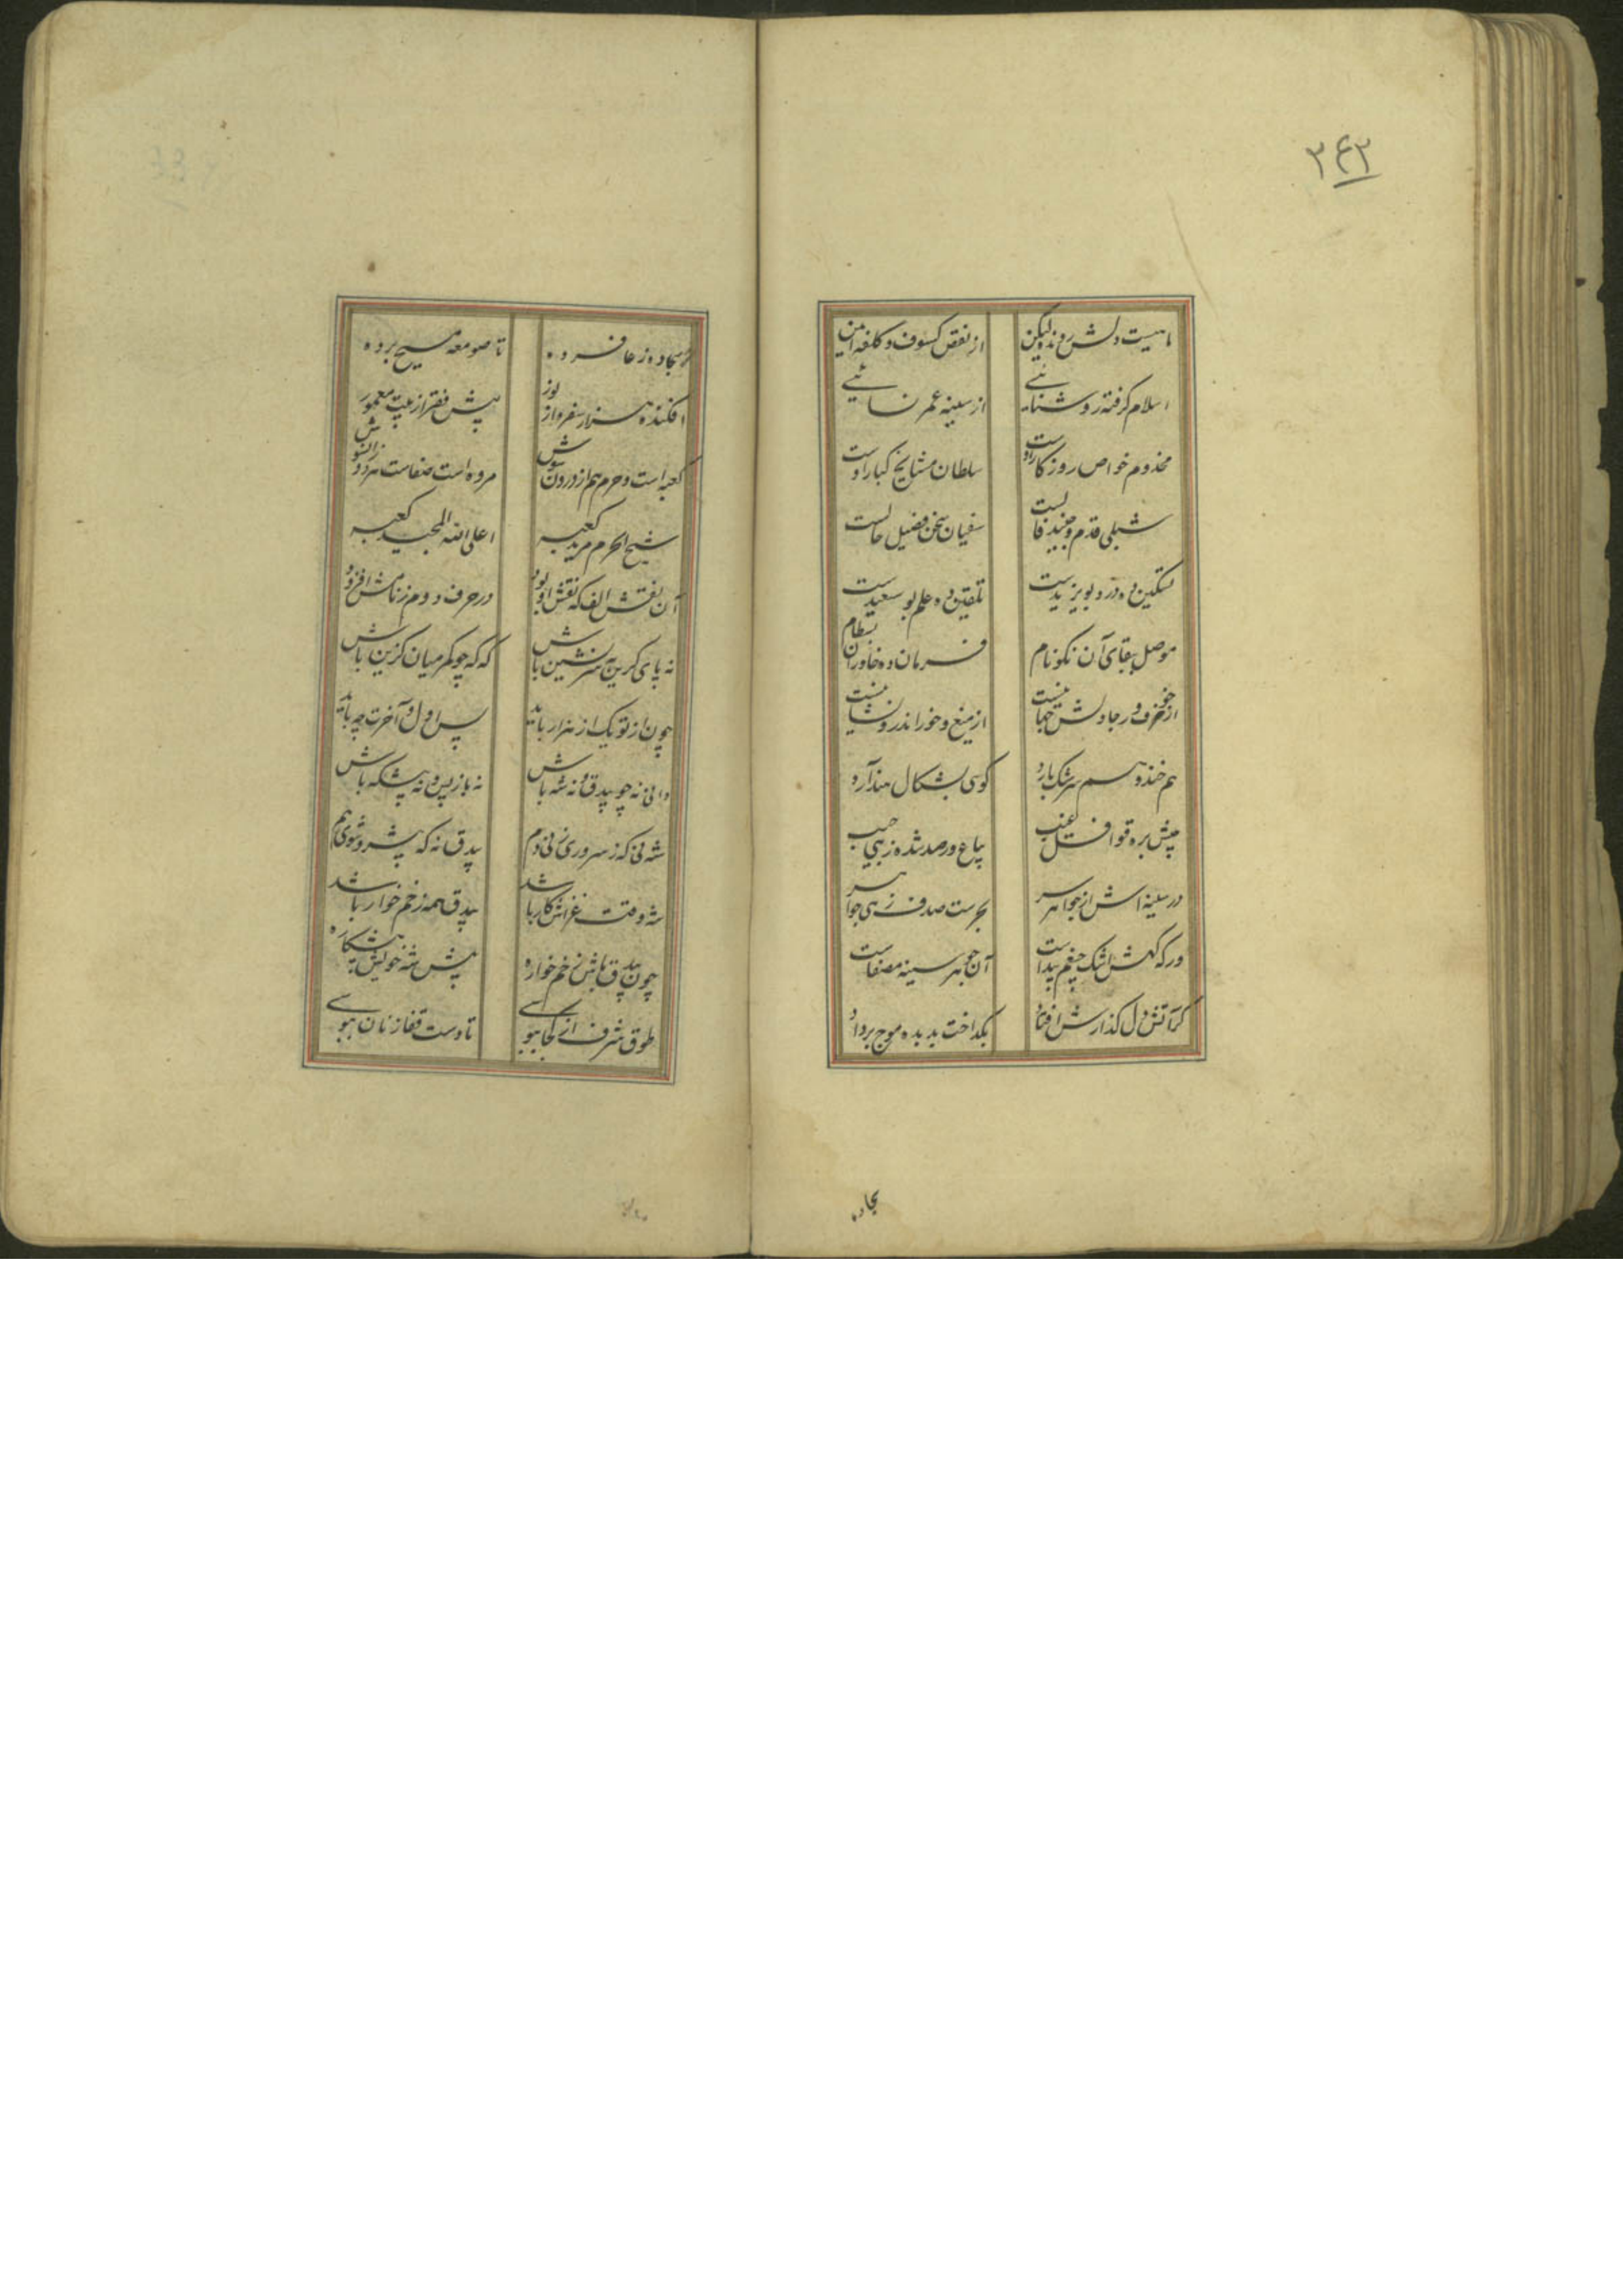 ۳۴۳
ماهیست دلش رونده لیکن
از نقص کسوف و کلفه ایمن
اسلام گرفته روشنایی
از سینه عمر نسائی
مخدوم خواص روزگار اوست
سلطان مشایخ کبار اوست
شبلی قدم و جنید قالست
سفیان سخن و فضیل حالست
تسکین ده درد بویزیدست
تلقین ده علم بوسعیدست
موصل ببقای آن نکونام
فرمان ده خاوران بسطام
از خوف و رجا دلش
از میغ و خور اندرو
هم خندد و هم سرشک بارد
گوئی بشکال هند آرد
پیش بره قوافل غیب
بیاع و رصد شده زهی جیب
در سینه اش از جواهر سر
بحرست صدف زهی جواهر
ورگه گهش اشک چشم پیداست
آن جوهر سینه مصفاست
کز آتش دل گذارش افتاد
بگداخت بدیده موج برداد
سجاده
سجاده ز عافرده
تا صومعه مسیح برده
افکنده هزار سفر واز لوز
پیش فقر از بیت معمور
کعبه است و حرم هم از درونش
مروه است صفاست هر دو زانوش
شیخ الحرم مرید کعبه
اعلی الله المجید کعبه
آن نقش الف که نقش او بود
در حرف دوم ز نامش افزود
نه پای گزین سرنشین باش
که که چو کمر میان گزین باش
چون از تو یک از هزار باید
پس اول و آخرت چه باید
دانی نه چو بیدق و نه شه باش
نه باز پس و نه پیشگه باش
شه نی که ز سروری زنی دم
بیدق نه که پیش رو شوی هم
شه وقت غرامکار باشد
بیدق همه زخم خوار باشد
چون بیدق باش زخم خواره
پیش شه خویش
طوق شرف از کجا بپویی
تا دست قفازنان